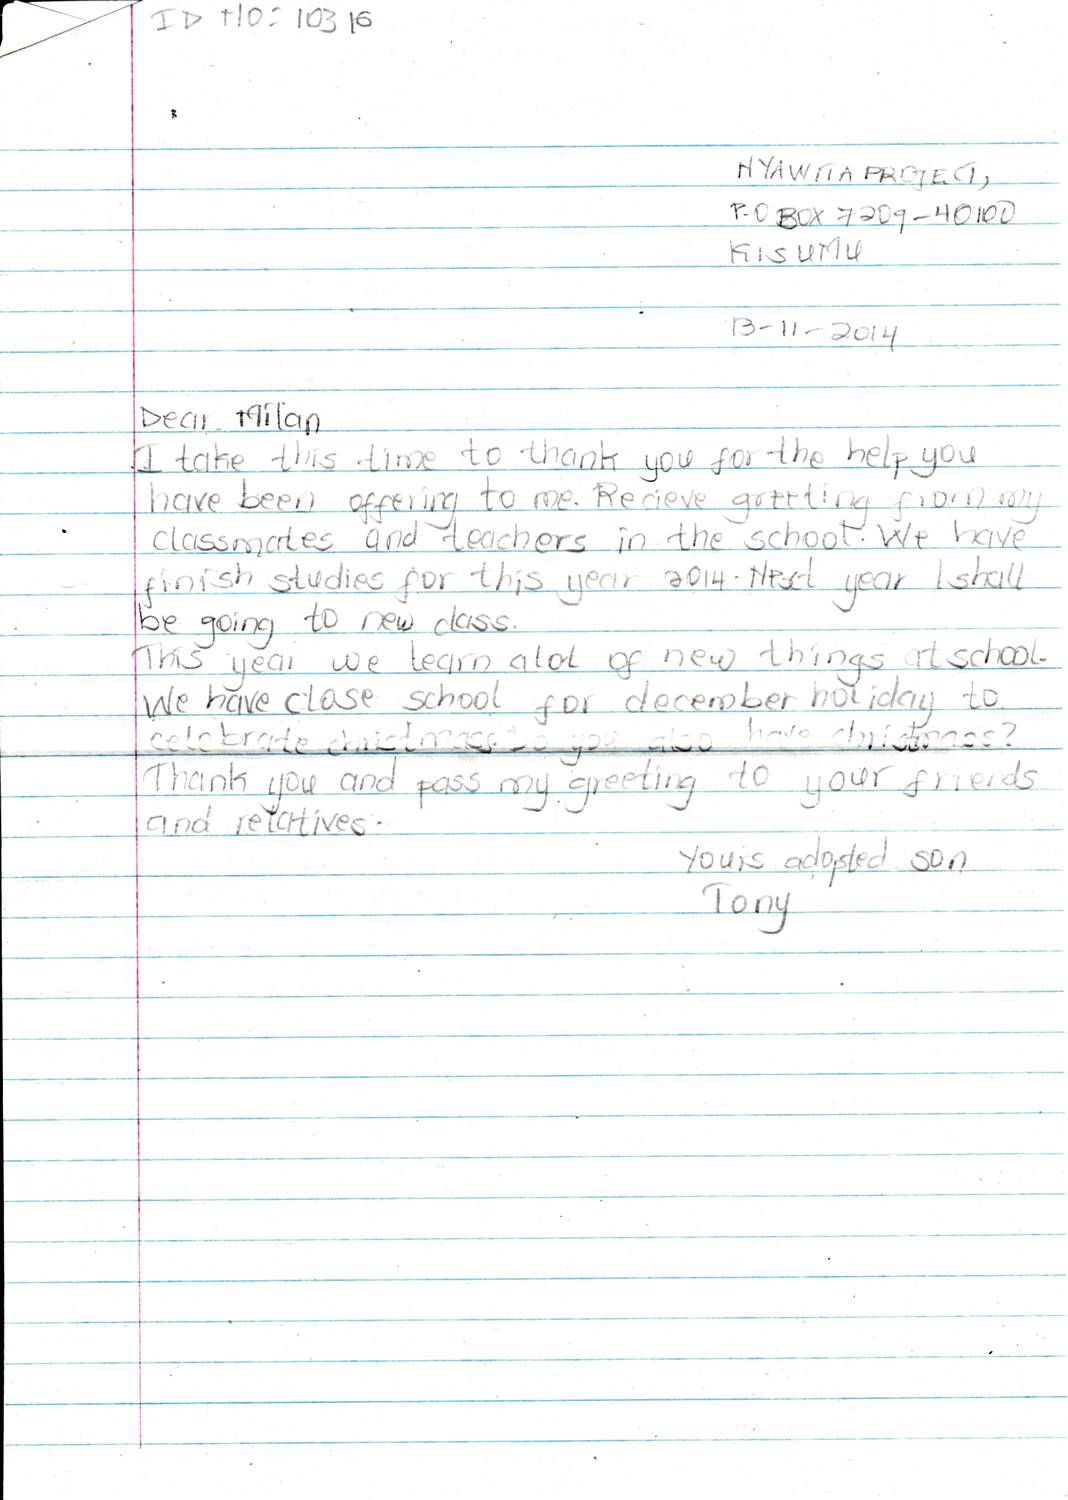 ID NO: 10316
NYAWITA PROJECT,
P.O BOX 7209-40100
KISUMU
13-11-2014
Dear Milan
I take this time to thank you for the help you
have been offering to me. Recieve greeting from my
classmates and teachers in the school. We have
finish studies for this year 2014. Next year I shall
be going to new class.
This year we learn alot of new things at school.
We have close school for december holiday to
celebrate christmass. Do you also have christmass?
Thank you and pass my greeting to your friends
and relatives.
Youis adopted son
Tony